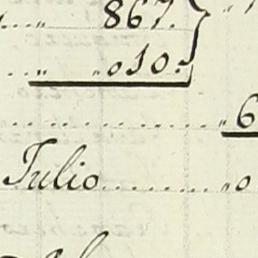 867.
010.
6
Julio 0